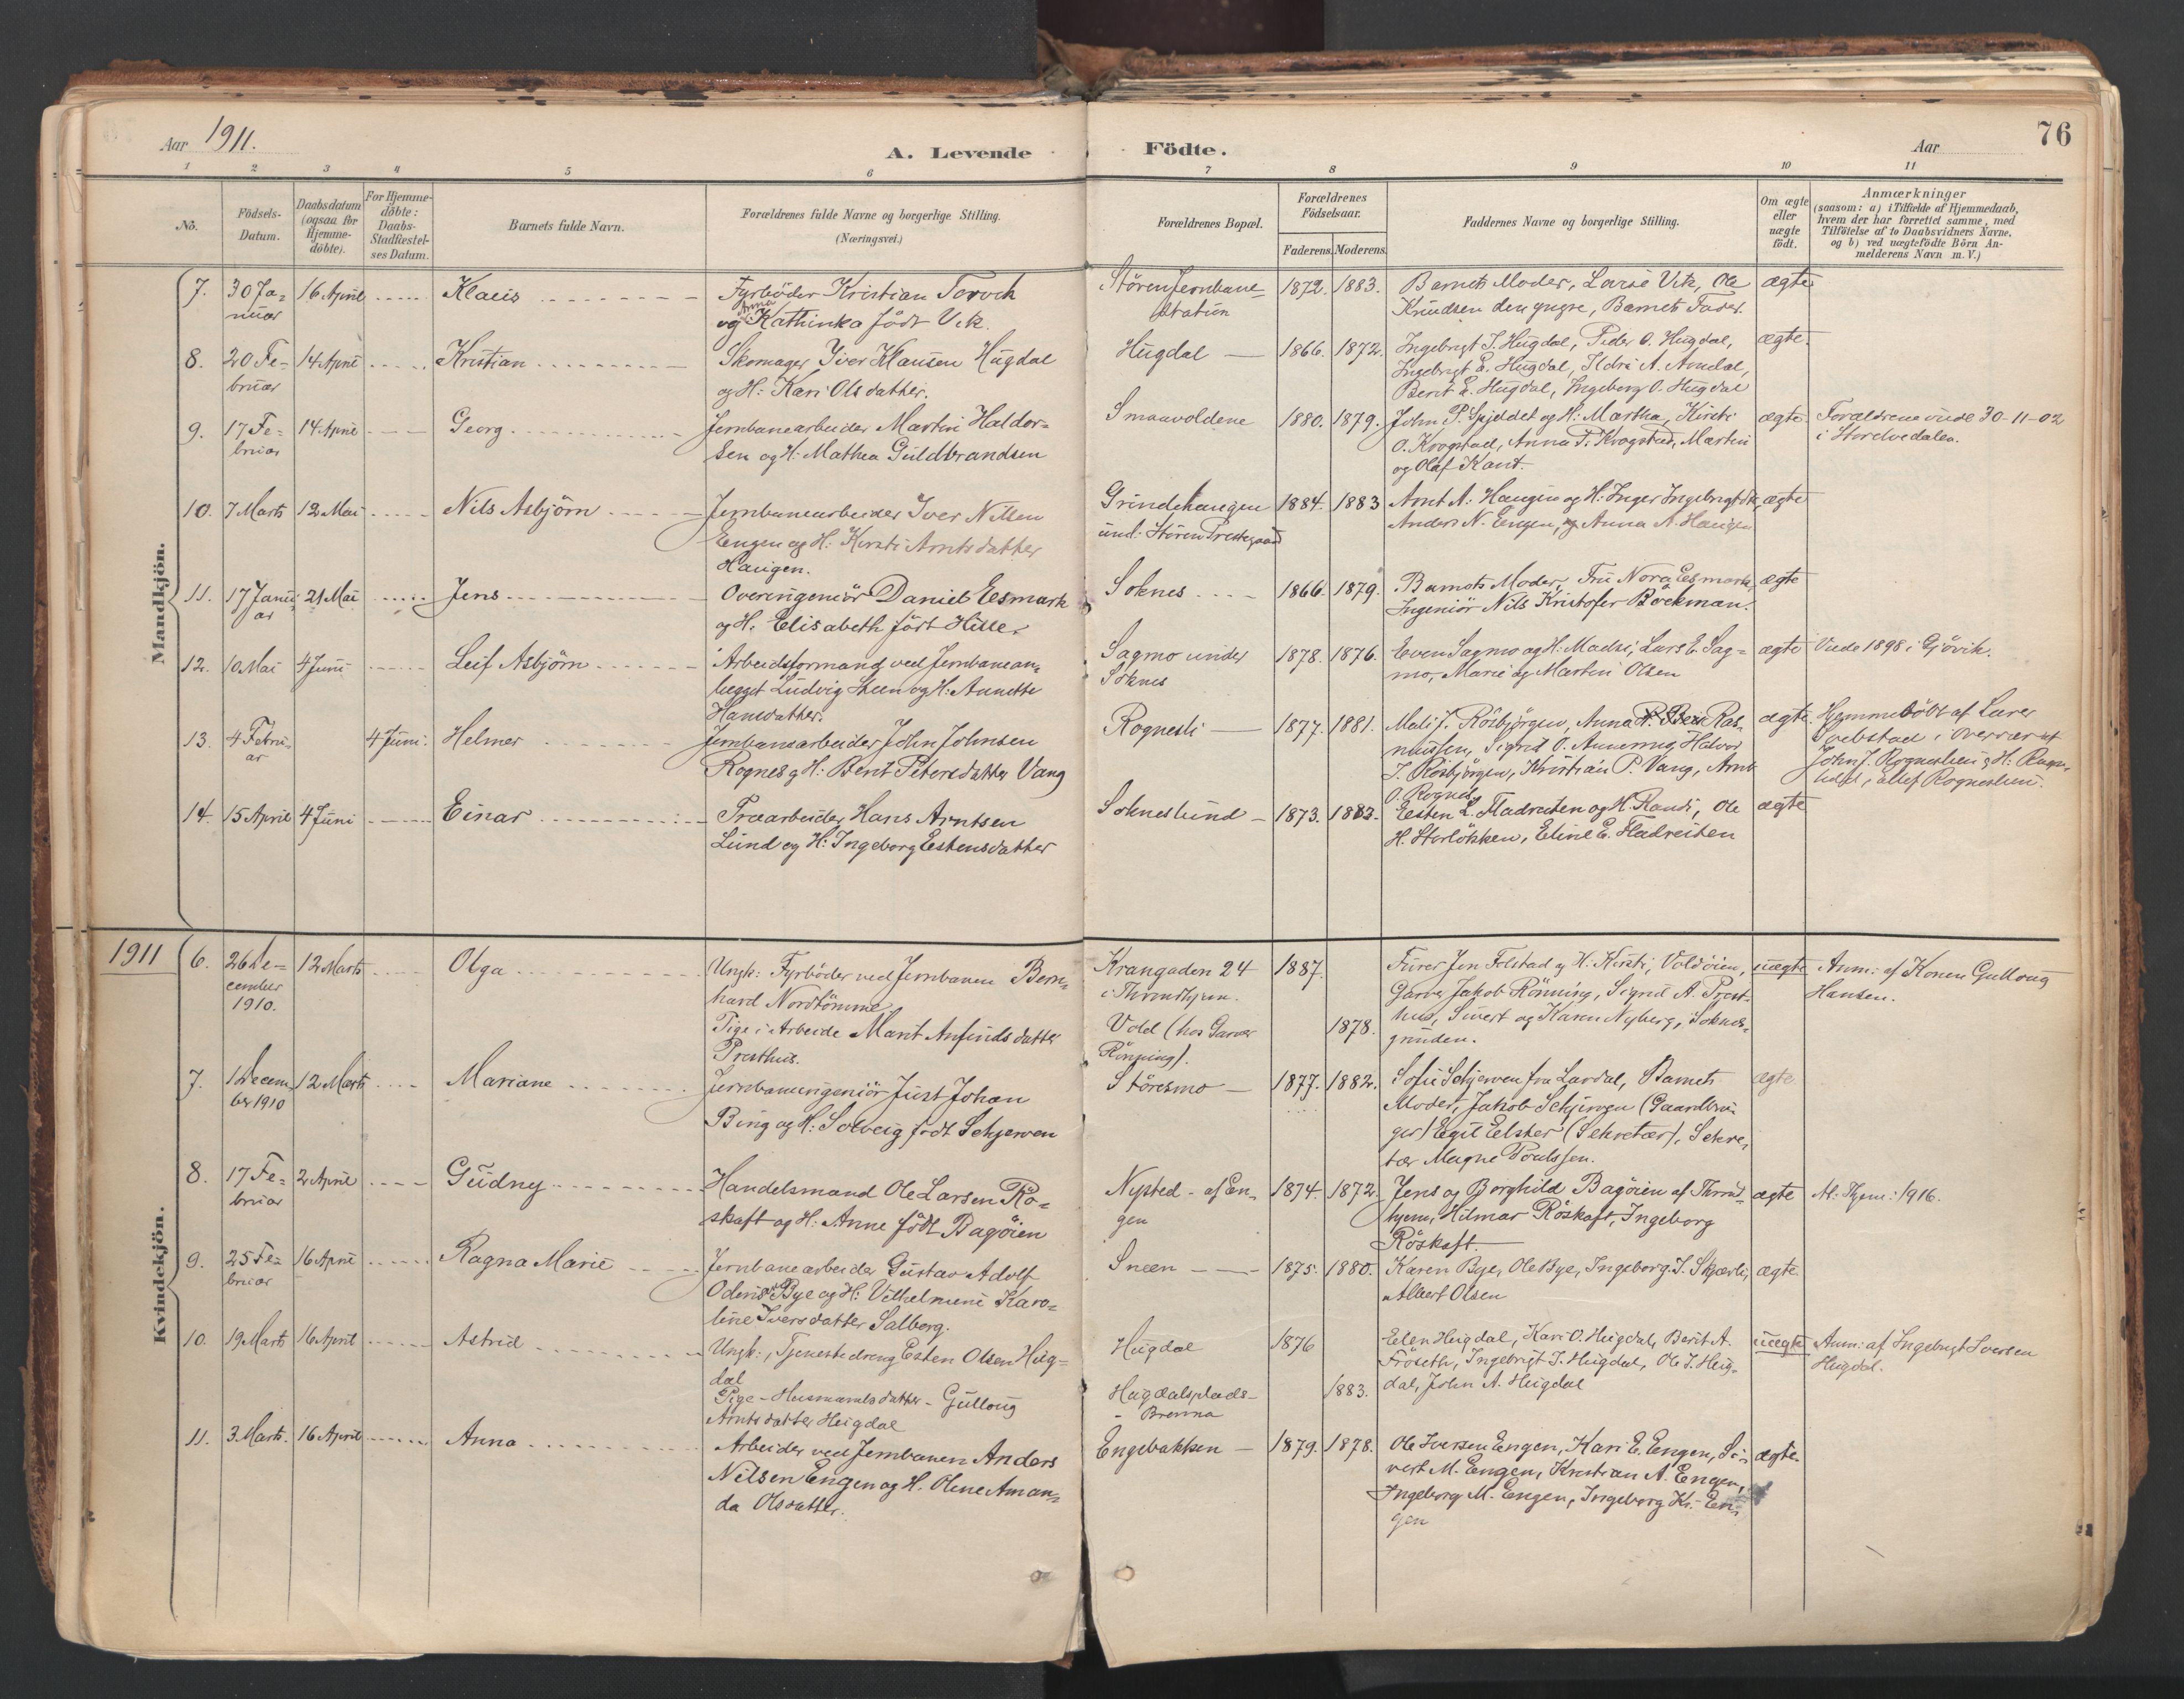 Aar 1911.
A. Levende Födte.
Aar
76
1 2 3 4 5 6 7 8 9 10 11
No.
Födsels-
Datum.
Daabsdatum
(ogsaa for
Hjemme-
döbte).
For Hjemme-
döbte:
Daabs-
Stadfæstel-
ses Datum.
Barnets fulde Navn.
Forældrenes fulde Navne og borgerlige Stilling.
(Næringsvei.)
Forældrenes Bopæl.
Forældrenes
Födselsaar.
Faderens. Moderens.
Faddernes Navne og borgerlige Stilling.
Om ægte
eller
uægte
födt.
Anmærkninger
(saasom: a) i Tilfælde af Hjemmedaab,
hvem der har forrettet samme, med
Tilföielse af to Daabsvidners Navne,
og b) ved uægtefödte Börn An-
melderens Navn m. V.)
Mandkjön.
7. 30 Ja-
nuar
16 April
Klaus
Fyrböder Kristian
og Anna Kathinka födt Vik.
Stören Jernbane-
station
1872. 1883.
Barnets Moder, Lovise Vik, Ole
Knudsen den yngre, Barnets Fader.
ægte
8. 20 Fe-
bruar
14 April
Kristian
Skomager Iver Klausen Hugdal
og H: Kari Olsdatter.
Hugdal
1866. 1872.
Ingebrigt I. Hugdal, Peder O. Hugdal,
Ingebrigt E. Hugdal, Ildri A. Amdal,
Berit E. Hugdal, Ingeborg O. Hugdal
ægte.
9. 17 Fe-
bruar
14 April
Georg
Jernbanearbeider Martin Haldor-
sen og H: Mathea Guldbrandsen
Smaavoldene
1880. 1879.
John P. Spjeldet og H: Martha, Kirsti
O. Krogstad, Anna P. Krogstad, Martin
og Olaf Kant.
ægte.
Forældrene viede 30-11-02
i Storelvedalen.
10. 7 Marts 12 Mai
Nils Asbjörn
Jernbanearbeider Iver Nilsen
Engen og H: Kirsti Arntsdatter
Haugen.
Grindehaugen
und. Stören Prestegaard
1884. 1883
Arnt A. Haugen og H: Inger Ingebrigtsdtr.,
Anders N. Engen, og Anna A. Haugen
ægte
11. 17 Janu-
ar
21 Mai
Jens
Overingeniör Daniel Eesmark
og H. Elisabeth födt Hille.
Soknes
1866. 1879.
Barnets Moder, Fru Nora Eesmark,
Ingeniör Nils Kristofer Böckman.
ægte
12. 10 Mai 4 Juni
Leif Asbjörn
Arbeidsformand ved Jernbanean-
lægget Ludvig Steen og H: Annette
Hansdatter.
Sagmo under
Soknes
1878. 1876.
Even Sagmo og H: Madsi, Lars E. Sag-
mo, Marie og Martin Olsen
ægte
Viede 1898 i Gjövik.
13. 4 Febru-
ar
4 Juni.
Helmer
Jernbanearbeider John Johnsen
Rognes og H: Berit Petersdatter Vang
Rognesli
1877. 1881.
Mali J. Rösbjörgen, Anna Ras-
mussen, Sigrid O. Halvor
J. Rösbjörgen, Kristian P. Vang, Arnt
O. Rognes
ægte.
Hjemmedöbt af Lærer
i Overvær af
John J. Rogneslien og H:
Rogneslien.
14. 15 April 4 Juni
Einar
Træarbeider Hans Arntsen
Lund og H: Ingeborg Estensdatter
Sokneslund
1873. 1882.
Esten L. Fladreiten og H. Randi, Ole
H. Storlökken, Eline E. Fladreiten
ægte
Kvindekjön.
1911
6. 26 De-
cember
1910.
12 Marts
Olga
Ungk: Fyrböder ved Jernbanen Bern-
hard Nordtömme
Pige i Arbeide Marit Anfindsdatter
Presthus.
Krangaden 24
i Throndhjem.
Vold (hos Garver
Rönning).
1887.
1878.
Furer Jon Folstad og H. Kirsti, Voldöien,
Garver Jakob Rönning, Sigrid A. Prest-
hus, Sivert og Karen Nyberg, Soknes-
grinden.
uægte
Anm: af Konen Gulloug
Hansen.
7. 1 Decem-
ber 1910
12 Marts
Mariane
Jernbaneingeniör Just Johan
Bing og H: Solveig födt Schjerven
Störesmo
1877. 1882.
Sofie Schjerven fra Lardal, Barnets
Moder, Jakob Schjerven (Gaardbru-
ger) Egil Elster (Sekretær), Sekre-
tær Magne Poulssen.
ægte
8. 17 Fe-
bruar
2 April
Gudny
Handelsmand Ole Larsen Rö-
skaft og H: Anne födt Bagöien
Nysted - af En-
gen
1874. 1872.
Jens og Borghild Bagöien af Thrond-
hjem, Hilmar Röskaft, Ingeborg
Röskaft.
ægte
At. Thjem: 1916.
9. 25 Fe-
bruar
16 April
Ragna Marie
Jernbanearbeider Gustav Adolf
Odenis Bye og H: Vilhelmine Karo-
line Iversdatter Salberg.
Sneen
1875. 1880.
Karen Bye, Ole Bye, Ingeborg J. Skjærli,
Albert Olsen
ægte.
10. 19 Marts 16 April
Astrid
Ungk:, Tjenestedreng Esten Olsen Hug-
dal
Pige - Husmandsdatter - Gulloug
Arntsdatter Hugdal
Hugdal
Hugdalsplads-
- Brenna
1876
1883.
Eelen Hugdal, Kari O. Hugdal, Berit A.
Fröseth, Ingebrigt I. Hugdal, Ole I. Hug-
dal, John A. Hugdal
uægte
Anm: af Ingebrigt Iversen
Hugdal.
11. 3 Marts. 16 April
Anna
Arbeider ved Jernbanen Anders
Nilsen Engen og H. Oline Aman-
da Olsdatter.
Engebakken
1879. 1878.
Ole Iversen Engen, Kari E. Engen, Si-
vert M. Engen, Kristian A. Engen,
Ingeborg M. Engen, Ingeborg Kr. En-
gen
ægte.